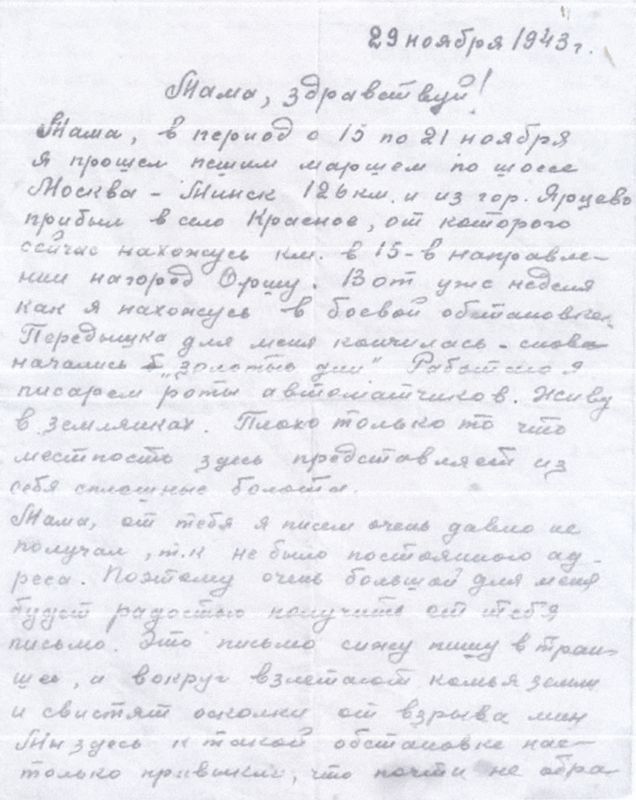 29 ноября 1943 г.
Мама, здравствуй!
Мама, в период с 15 по 21 ноября
я прошел пешим маршем по шоссе
Москва - Минск 126 км. и из гор. Ярцево
прибыл в село Красное, от которого
сейчас нахожусь км. в 15-в направле-
нии на город Оршу. Вот уже неделя
как я нахожусь в боевой обстановке.
Передышка для меня кончилась - снова
начались "золотые дни" Работаю я
писарем роты автоматчиков. Живу
в землянках. Плохо только то что
местность здесь представляет из
себя сплошные болота.
Мама, от тебя я писем очень давно не
получал, т.к не было постоянного ад-
реса. Поэтому очень большой для меня
будет радостью получить от тебя
письмо. Это письмо сижу пишу в тран-
шее, а вокруг взлетают комья земли
и свистят осколки от взрыва мин
Мы здесь к такой обстановке нас-
только привыкли, что почти не обра-